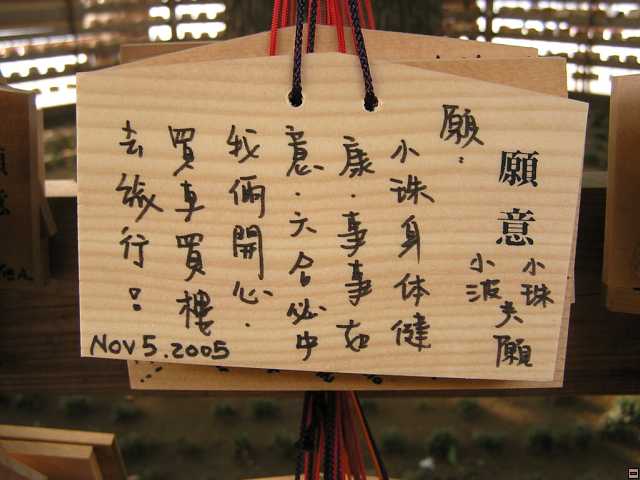 願意
小珠
小波夫願
願:
小珠身体健
康.事事如
意.六合必中
我倆開心.
買車買樓
去旅行!
NOV 5.2005